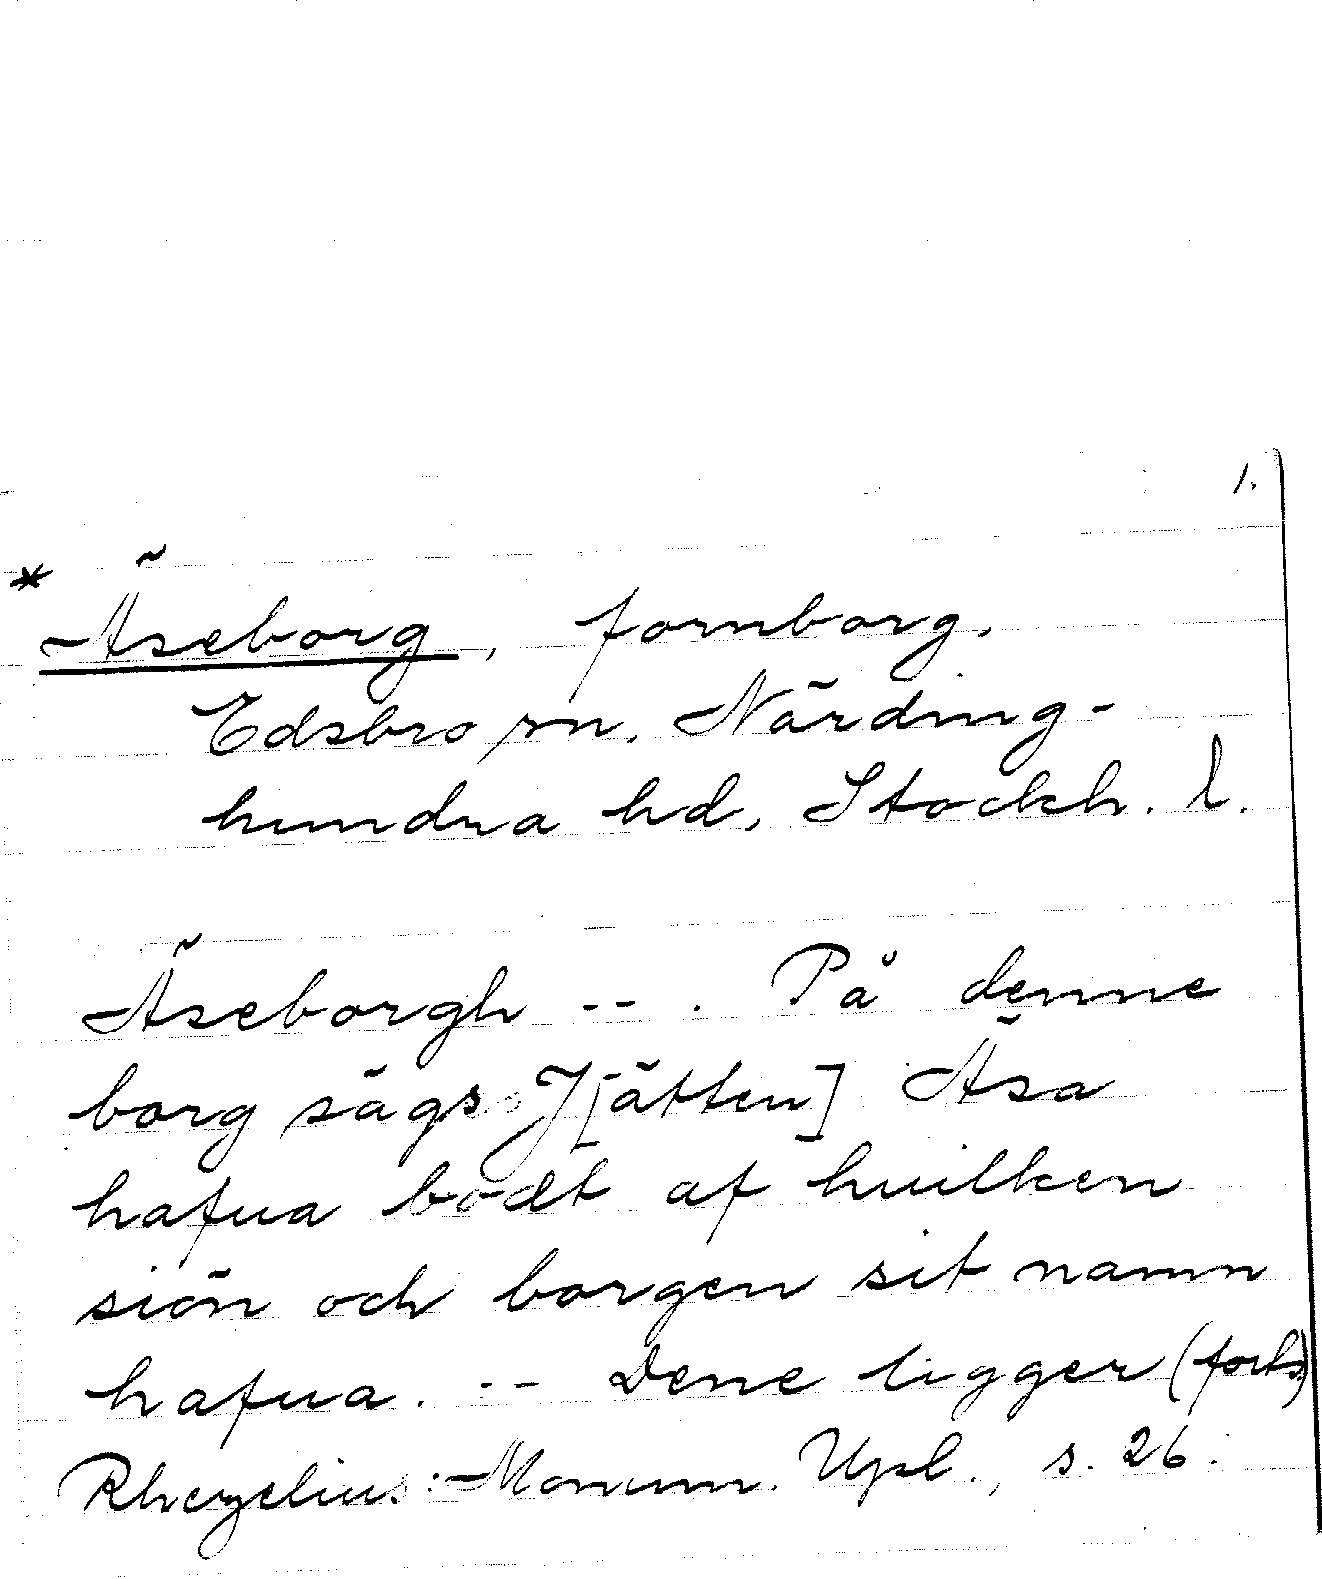 1.
* Äseborg, fornborg.
Edsbro sn. Närding-
hundra hd, Stockh. l.
Äseborgh --. På denne
borg sägs J[ätten] Äsa
hafua bodt af huilken
siön och borgen sit namn
hafua. -- Dene ligger (forts)
Rhezelius: Monum. Upl., s. 26.